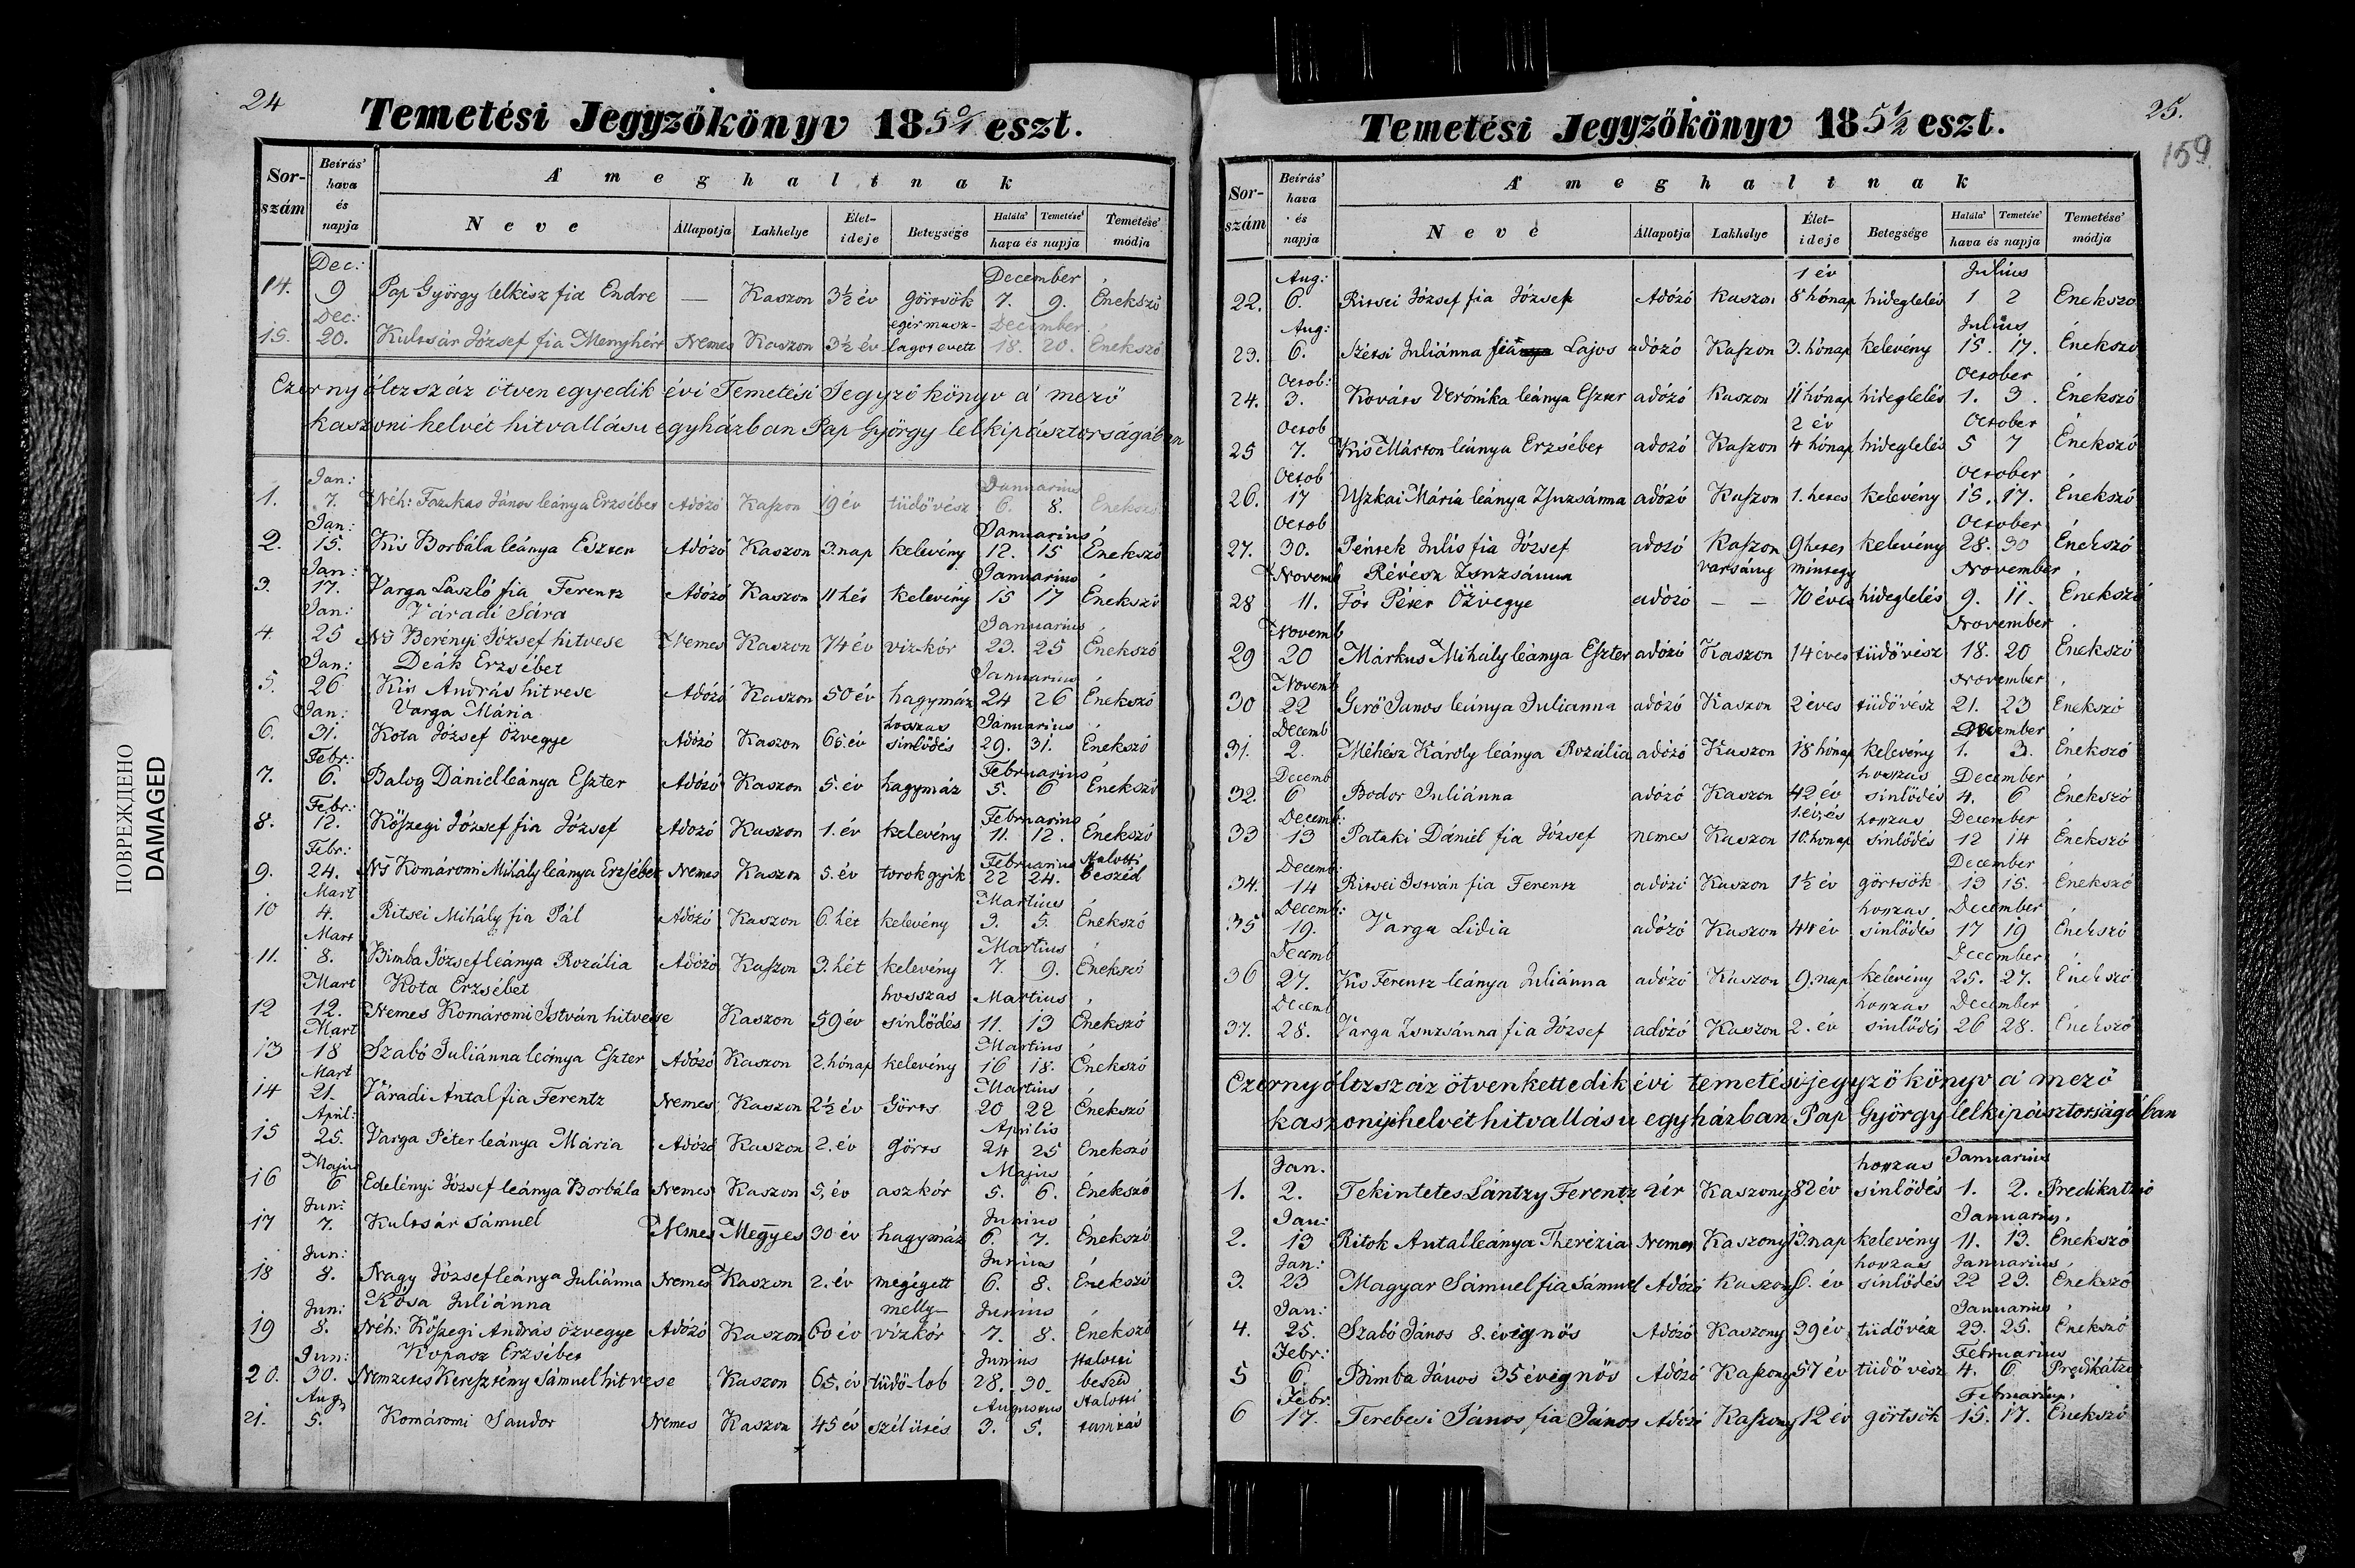 24
Temetési Jegyzőkönyv 185 0/1 eszt.
Sor-szám Beírás' hava és napja A' meghaltnak
Neve Állapotja Lakhelye Élet-ideje Betegsége Halála' Temetése' hava és napja Temetése' módja
Dec: December
14. 9 Pap György lelkész fia Endre — Kaszon 3½ év görtsök 7. 9. Énekszó
Dec: egérmasz- December
15. 20. Kultsár József fia Menyhért Nemes Kaszon 3½ év lagot evett 18. 20. Énekszó
Ezernyóltzszáz ötven egyedik évi Temetési Jegyző könyv a' mező
kaszoni helvét hitvallásu egyházban Pap György lelkipásztorságában
Jan: Januarius
1. 7. Néh: Fazekas János leánya Erzsébet Adózó Kaszon 19 év tüdővész 6. 8. Énekszó
Jan: Januarius
2. 15. Kis Borbála leánya Eszter Adózó Kaszon 3. nap kelevény 12. 15 Énekszó
Jan: Januarius
3. 17. Varga László fia Ferentz Adózó Kaszon 11 hét kelevény 15 17 Énekszó
Jan: Váradi Sára Januarius
4. 25 Ns Berényi József hitvese Nemes Kaszon 74 év viz-kór 23. 25 Énekszó
Jan: Deák Erzsébet Januarius
5. 26 Kis András hitvese Adózó Kaszon 50 év hagymáz 24 26 Énekszó
Jan: Varga Mária hoszas Januarius
6. 31. Kota József Özvegye Adózó Kaszon 65. év sinlődés 29. 31. Énekszó
Febr: Februarius
7. 6. Balog Dániel leánya Eszter Adózó Kaszon 5. év hagymáz 5. 6 Énekszó
Febr: Februarius
8. 12. Kőszegi József fia József Adozó Kaszon 1. év kelevény 11. 12. Énekszó
Febr: Februarius Halotti
9. 24. Ns Komáromi Mihály leánya Erzsébet Nemes Kaszon 5. év torok gyik 22 24. beszéd
Mart Martius
10 4. Ritsei Mihály fia Pál Adózó Kaszon 6. hét kelevény 3. 5. Énekszó
Mart Martius
11. 8. Bimba József leánya Rozália Adózó Kaszon 3. hét kelevény 7. 9. Énekszó
Mart Kota Erzsébet hosszas Martius
12 12. Nemes Komáromi István hitvese Kaszon 59 év sinlődés 11. 13 Énekszó
Mart Martius
13 18 Szabó Juliánna leánya Eszter Adózó Kaszon 2. hónap kelevény 16 18. Énekszó
Mart Martius
14 21. Váradi Antal fia Ferentz Nemes Kaszon 2½ év Görts 20 22 Énekszó
April: Aprilis
15 25. Varga Péter leánya Mária Adózó Kaszon 2. év görts 24 25 Énekszó
Majus Majus
16 6 Edelényi József leánya Borbála Nemes Kaszon 5. év aszkór 5. 6. Énekszó
Jun: Junius
17 7. Kultsár Sámuel Nemes Megyes 30 év hagymáz 6. 7. Énekszó
Jun: Junius
18 8. Nagy József leánya Juliánna Nemes Kaszon 2. év megégett 6. 8. Énekszó
Jun: Kósa Juliánna melly- Junius
19 8. Néh: Kőszegi András özvegye Adózó Kaszon 60 év vízkór 7. 8. Énekszó
Jun: Kopasz Erzsébet Junius Halotti
20. 30. Nemzetes Keresztény Sámuel hitvese Kaszon 65. év tüdő-lob 28. 30. beszéd
Aug Augustus Halotti
21. 5. Komáromi Sandor Nemes Kaszon 45 év szél ütés 3. 5.
25.
159
Temetési Jegyzőkönyv 185 1/2 eszt.
Sor-szám Beírás' hava és napja A' meghaltnak
Neve Állapotja Lakhelye Élet-ideje Betegsége Halála' Temetése' hava és napja Temetése' módja
Aug: 1 év Julius
22. 6. Ritsei József fia József Adózó Kaszon 8 hónap hideglelés 1 2 Énekszó
Aug: Julius
23. 6. Szétsi Juliánna fia Lajos adózó Kaszon 3. hónap kelevény 15. 17. Énekszó
Octob: October
24. 3. Kováts Verónika leánya Eszter adózó Kaszon 11 hónap hideglelés 1. 3. Énekszó
Octob 2 év October
25 7. Kis Márton leánya Erzsébet adozó Kaszon 4 hónap hideglelés 5 7 Énekszó
Octob October
26. 17 Uszkai Mária leánya Zsuzsánna adózó Kaszon 1. hetes kelevény 15. 17. Énekszó
Octob October
27. 30. Péntek Julis fia József adozó Kaszon 9 hetes kelevény 28. 30 Énekszó
Novemb Révész Zsuzsánna varsány mintegy November
28 11. Fór Péter Özvegye adózó — — 70 éves hideglelés 9. 11. Énekszó
Novemb November
29 20 Márkus Mihály leánya Eszter adózó Kaszon 14 éves tüdővész 18. 20 Énekszó
Novemb November
30 22 Gerő János leánya Julianna adózó Kaszon 2 éves tüdővész 21. 23 Énekszó
Decemb December
31. 2. Méhész Károly leánya Rozália adózó Kaszon 18 hónap kelevény 1. 3. Énekszó
Decemb hosszas December
32. 6 Bodor Juliánna adózó Kaszon 42 év sinlődés 4. 6 Énekszó
Decemb: 1. év, és hosszas December
33 13 Pataki Dániel fia József nemes Kaszon 10. hónap sinlődés 12 14 Énekszó
Decemb: December
34. 14 Ritsei István fia Ferentz adózó Kaszon 1½ év görtsök 13 15. Énekszó
Decemb: hosszas December
35 19. Varga Lidia adózó Kaszon 44 év sinlődés 17 19 Énekszó
Decemb December
36 27. Kis Ferentz leánya Juliánna adózó Kaszon 9. nap kelevény 25. 27. Énekszó
Decemb hosszas December
37. 28. Varga Zsuzsánna fia József adózó Kaszon 2. év sinlődés 26 28. Énekszó
Ezernyóltzszáz ötvenkettedik évi temetési jegyző könyv a' mező
kaszonyi helvét hitvallásu egyházban Pap György lelkipásztorságában
Jan. hosszas Januarius
1. 2. Tekintetes Lántzy Ferentz Úr Kaszony 82 év sinlődés 1. 2. Predikatzió
Jan: Januarius
2. 13 Ritok Antal leánya Therézia Nemes Kaszony 13. nap kelevény 11. 13. Énekszó
Jan: hosszas Januarius
3. 23 Magyar Sámuel fia Sámuel Adózó Kaszony 6. év sinlődés 22 23. Énekszó
Jan: Januarius
4. 25. Szabó János 8. évig nős Adózó Kaszony 39 év tüdővész 23. 25. Énekszó
Febr: Februarius
5 6. Bimba János 35 évig nős Adózó Kaszony 57 év tüdő vész 4. 6 Predikátzió
Febr. Februarius
6 17. Terebesi János fia János Adózó Kaszony 12 év görtsök 15. 17. Énekszó
ПОВРЕЖДЕНО
DAMAGED